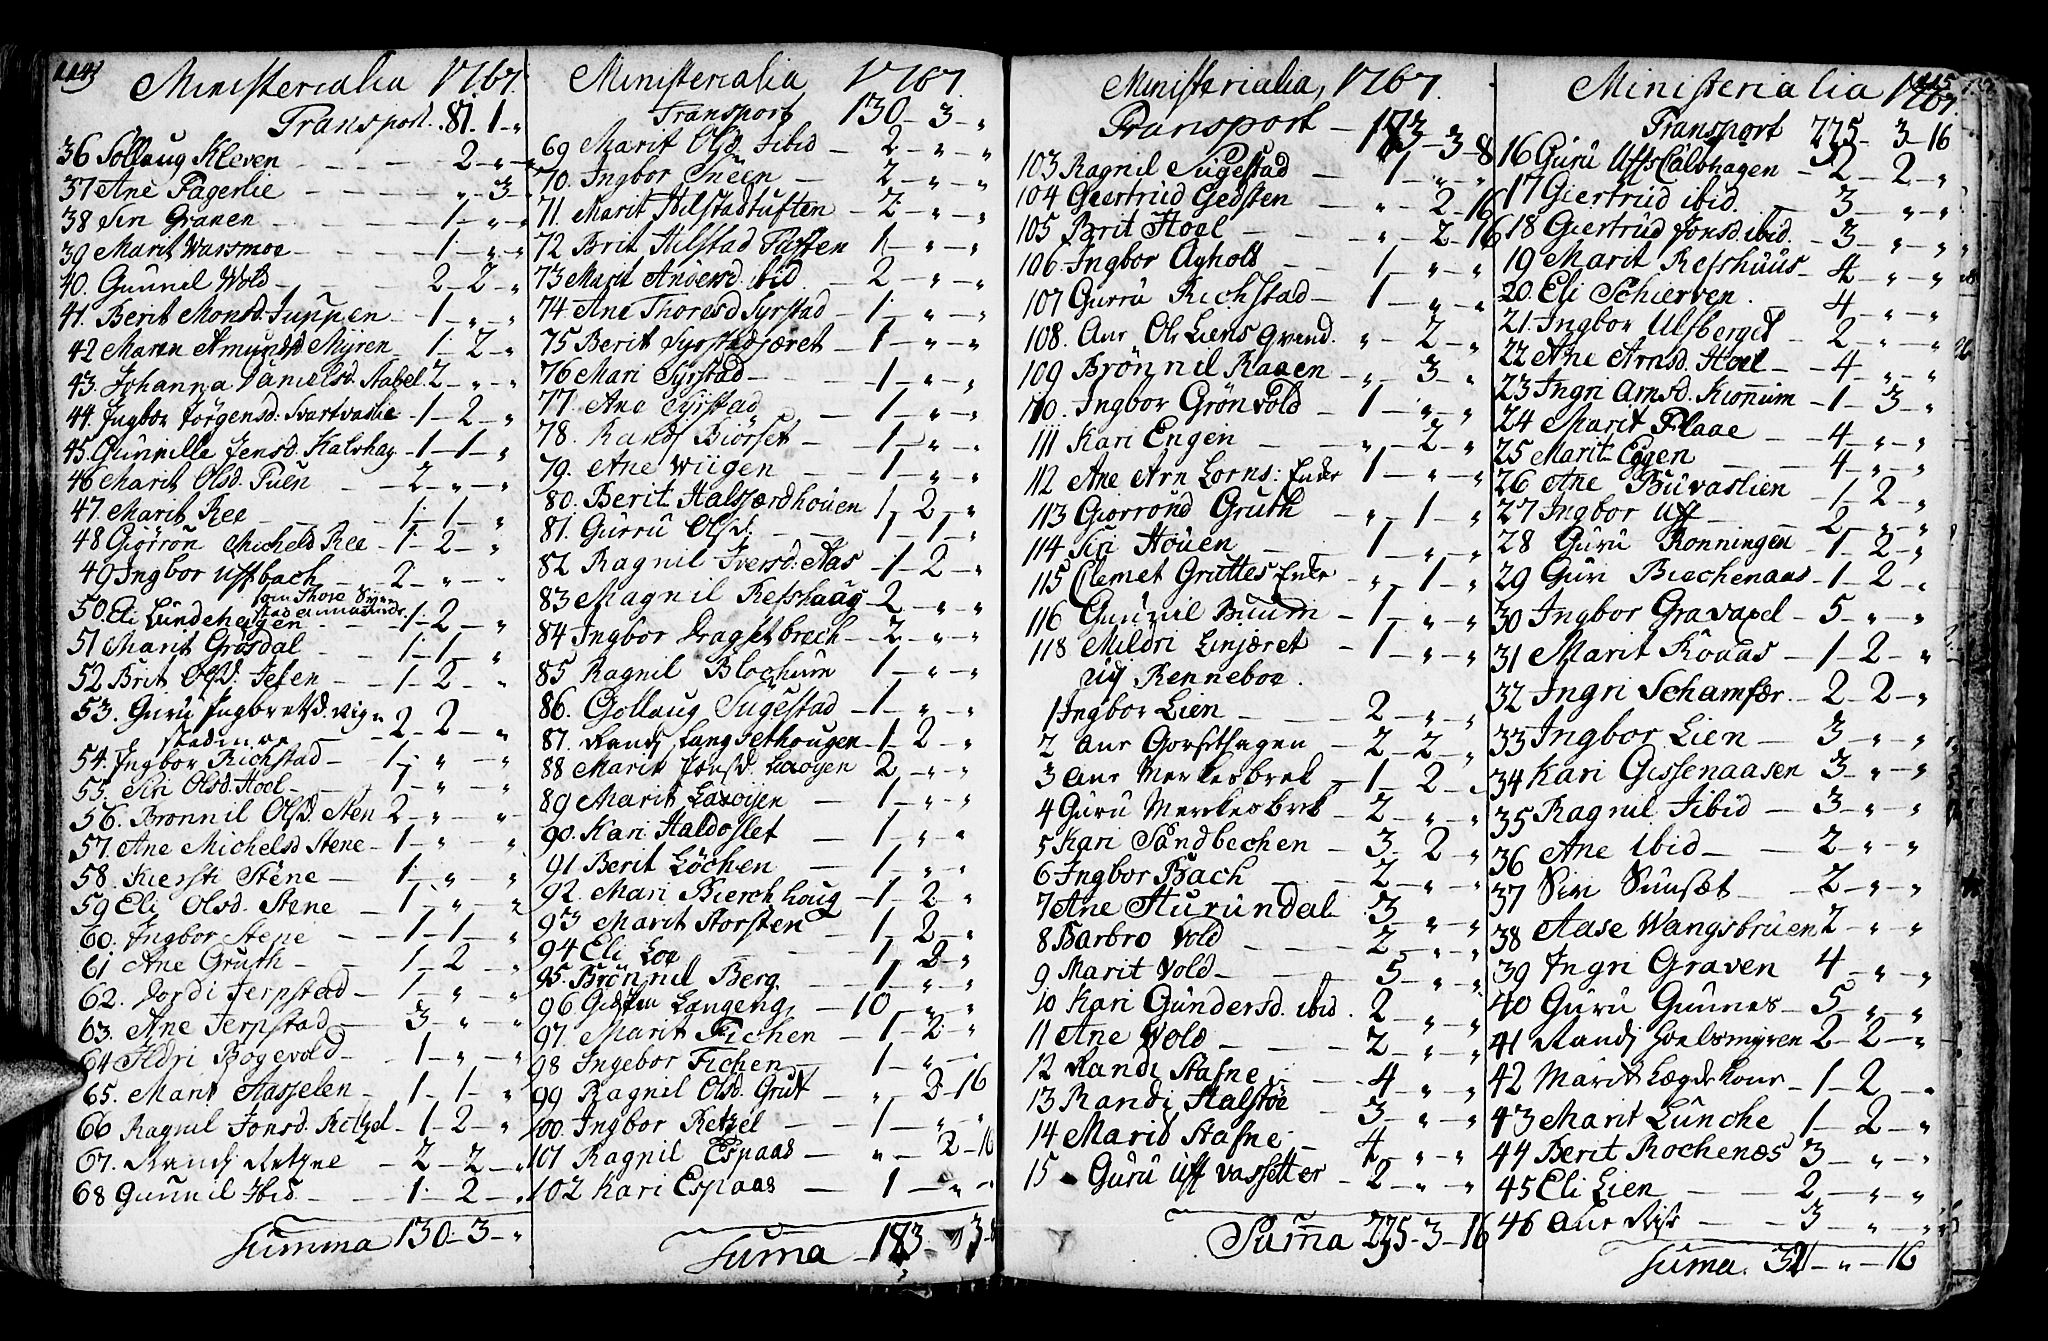 114
Ministerialia 1767.
Transport. 81. 1 - „
36 Sollaug Kleven - 2 - „ - „
37 Ane Fagerlie - „ - 3 -
38 Siri Graven - 1 - „ - „
39 Marit Warsmoe - 1 - „ - „
40. Gunnil Wold - 2 - 2 - „
41. Berit Monsd. Juppen - 1 - „ - „
42 Maren Amundsd Myren 1 - 2 - „
43. Johanna Danielsd. Aabel 2 - „ - „
44. Ingbor Jörgensd. Svartvaslie - 1 - 2 - „
45. Gunnille Jensd. Kalshag - 1 - 1 - „
46 Marit Olsd. Puen - 2 - „ - „
47. Marit Ree - 1 - 1 - „
48 Giörron Michelsd Ree - 1 - 2 - „
49 Ingbor Uffbach - 2 - „ - „
50. Eli Lundehegen - 1 - 2 - „
51 Marit Grosdal - 1 - 1 - „
52 Brit Olsd. Jesen - 1 - 2 - „
53. Guru Ingbretsd. Vig - 2 - 2 - „
54. Ingbor Richstad - 1 - „ - „
55. Siri Olsd. Hoel - 1 - „ - „
56. Bronnil Olsd. Sten 2 - „ - „
57. Ane Michelsd Stene - 1 - „ - „
58. Kiersti Stene - 1 - „ - „
59 Eli Olsd. Stene - 1 - „ - „
60. Ingbor Stene - 1 - 1 - „
61 Ane Gruth - 1 - 2 - „
62. Jordi Jerpstad - 1 - „ - „
63. Ane Jerpstad - 3 - „ - „
64 Ildri Bogevold - 1 - „ - „
65. Marit Hasselen - 1 - 1 - „
66 Ragnil Jonsd. Retzel - 1 - 2 - „
67. Randj Retzne - 2 - 2 - „
68 Gunnil Ibid - 1 - 2 - „
Summa 130 - 3 - „
Ministerialia 1767.
Transport 130 - 3 - „
69 Marit Olsd. Ibid - 2 - „ - „
70. Ingbor Eneen - 2 - „ - „
71. Marit Hilstadtuften - 2 - „ - „
72 Brit Hilstad Tuften 1 - „ - „
73 Marit Andersd ibid - 2 - „ - „
74 Ane Thoresd Syrstad - 1 - „ - „
75 Berit Syrstadsæret - 1 - „ - „
76 Mari Syrstad - 1 - „ - „
77. Ane Syrstad - 1 - „ - „
78. Randj Biörset - 1 - „ - „
79. Ane Wiigen - 1 - „ - „
80. Berit Halsfærdhouen 1 - 2 - „
81. Gurru Olsd. - 1 - 1 - „
82 Ragnil Iversd. Aas - 1 - 2 - „
83 Magnil Refshaug 2 - „ - „
84 Ingbor Dragsetbrech - 2 - „ - „
85 Ragnil Blochum 1 - „ - „
86. Gollaug Sugestad - 1 - „ - „
87. Randj Langsethougen - 1 - 2 - „
88 Marit Jonsd. Laxoyen 2 - „ - „
89 Marit Laxoyen - 1 - „ - „
90. Kari Haldoslet - 1 - „ - „
91 Berit Löchen - 1 - „ - „
92 Mari Bierchhoug - 1 - 2 - „
93 Marit Storsten - 1 - 2 - „
94 Eli Loe - 1 - 2 - „
95. Brönnil Berg. - 1 - „ - „
96 Gidsken Langeng, - 10 - „ - „
97. Marit Fichen - 1 - 2 - „
98 Ingebor Fichen - 1 - „ - „
99 Ragnil Olsd. Grut - „ - 2 - 16
100. Ingbor Retzel - 1 - „ - „
101 Ragnil Espaas - „ - 2 - 16
102 Kari Espaas - 1 - „ - „
Suma - 173. 3 - 8
Ministerialia, 1767.
Transport - 173 - 3 - 8
103 Ragnil Sugestad - 1 - „ - „
104 Giertrud Gedsten - „ - 2 - 16
105 Brit Hoel - „ - 2 - 16
106. Ingbor Ayholt - 1 - „ - „
107 Gurru Richstad - 1 - „ - „
108. Ane Ols Liens Qvind. „ - 2 - „
109 Brönnil Raaen - „ - 3 - „
110. Ingbor Grönvold - 1 - „ - „
111 Kari Engen - „ - 2 - „
112 Ane Arn Lorns: Enke 1 - „ - „
113 Giorrond Gruth - „ - 1 - „
114 Siri Houen - 1 - „ - „
115 Clemet Gruttes Enke - „ - 1 - „
116 Gunnil Buum - 1 - „ - „
118 Mildri Linjæret - 1 - „ - „
Renneboe.
1 Ingbor Lien - 2 - „ - „
2 Ane Gorsethagen - 2 - 2 - „
3 Ane Merkesbrek - 1 - 2 - „
4 Guru Merkesbrek - 2 - „ - „
5 Kari Sandbechen - 3 - 2 - „
6 Ingbor Bach - 2 - „ - „
7 Ane Hurundal - 3 - „ - „
8 Barbro Vold - 2 - „ - „
9 Marit Vold - 5 - „ - „
10 Kari Gundersd. ibid. 2 - „ - „
11 Ane Vold - 2 - „ - „
12 Randi Stafne - 4 - „ - „
13 Randi Halstöe - 3 - „ - „
14 Marit Stafne - 4 - „ - „
15 Guru Uff Vassetter - 2 - „ - „
Suma 225 - 3 - 16
115
Ministerialia 1767.
Transport 225 - 3 - 16
16 Guru Uffs Calvhagen - 2 - 2 - „
17 Giertrud ibid. - 3 - „ - „
18 Giertrud Jonsd. ibid. - 3 - „ - „
19 Marit Refshuus - 4 - „ - „
20. Eli Schierven. 4 - „ - „
21. Ingbor Ulsberget - 2 - „ - „
22 Ane Arnsd. Hoel - 4 - „ - „
23 Ingri Arnsd. Kionum - 1 - 3 - „
24 Marit Flaae - 4 - „ - „
25 Marit Eggen - 4 - „ - „
26 Ane Buvaslien - 1 - 2 - „
27 Ingbor Uff - 2 - „ - „
28 Guru Ronningen - 1 - 2 - „
29 Guri Biechenaas - 1 - 2 - „
30 Ingbor Gravapel - 5 - „ - „
31 Marit Koaas - 1 - 2 - „
32 Ingri Schamfær - 2 - 2 - „
33 Ingbor Lien - 3 - „ - „
34 Kari Gissenaasen 3 - „ - „
35 Ragnil Ibid - 3 - „ - „
36 Ane Ibid - 2 - „ - „
37 Siri Sunsæt - 2 - „ - „
38 Aase Wangsbruen 2 - „ - „
39 Ingri Graven 4 - „ - „
40 Guru Gunnes - 5 - „ - „
41 Randj Hoelsmyren 2 - 2 - „
42 Marit - 1 - 2 - „
43 Marit Lunche 1 - 2 - „
44 Berit Rochenes 3 - „ - „
45 Eli Lien - 2 - „ - „
46 Ane Rise - 3 - „ - „
Suma. 321 - „ - 16